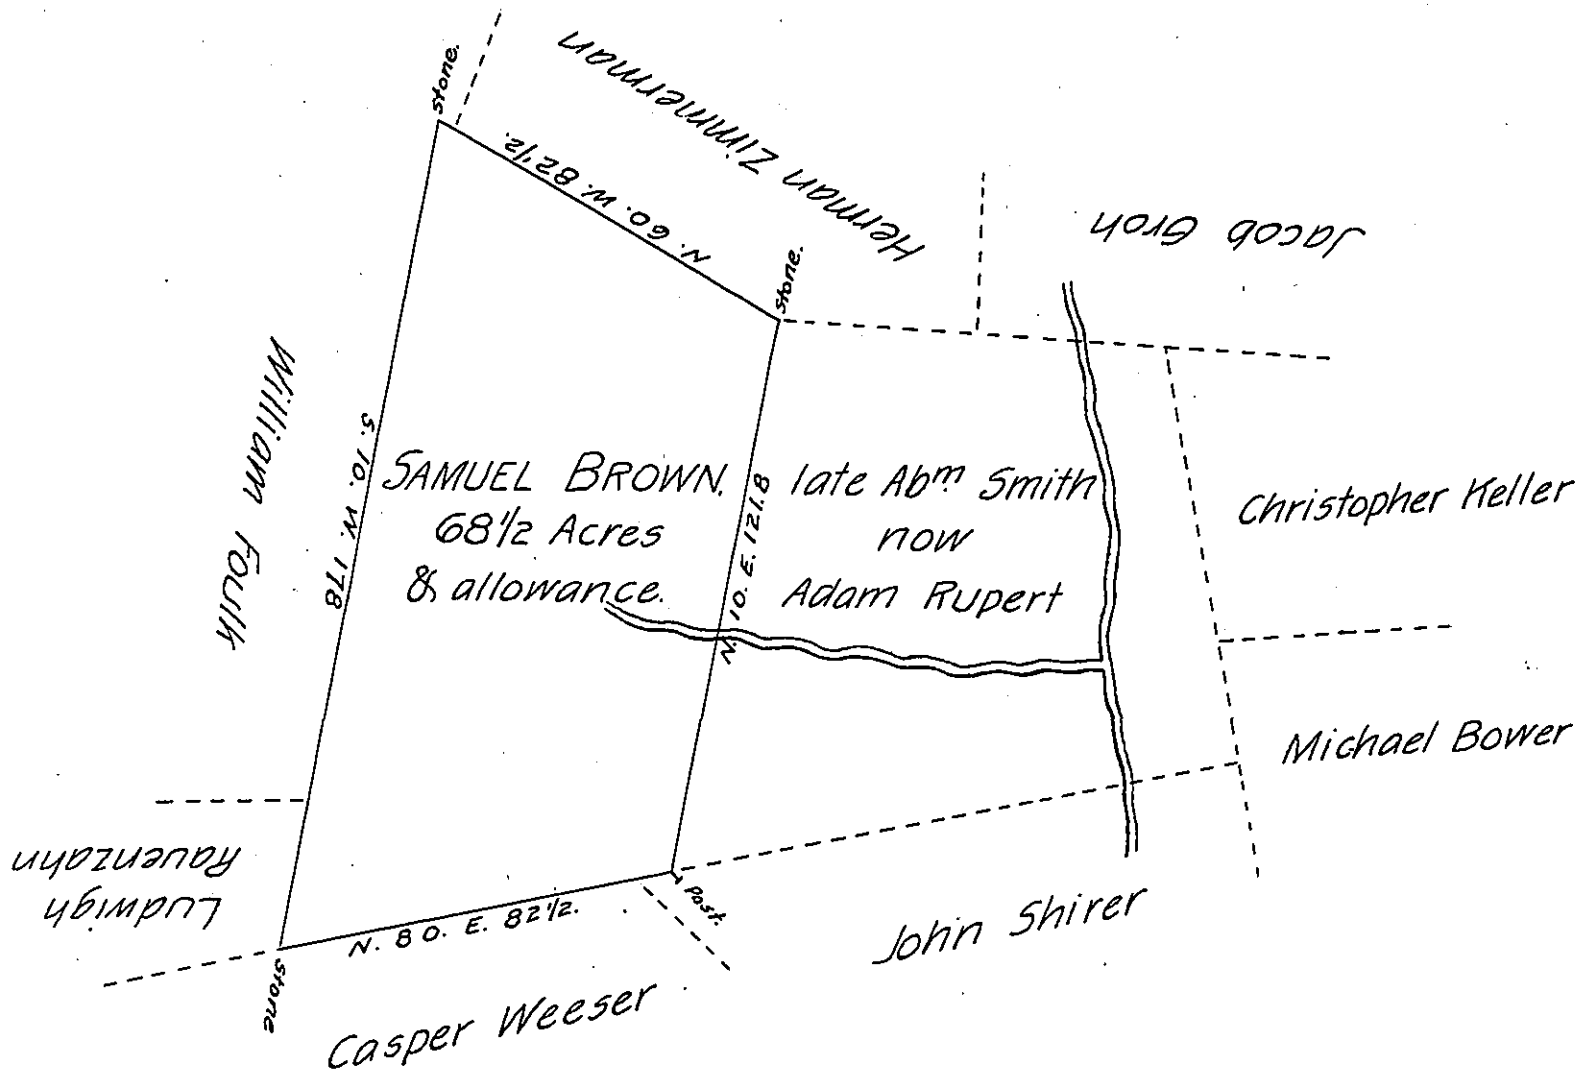 stone.
Herman Zimmerman
N. 60. W. 82 1/2.
Jacob Groh
stone.
William Foulk
S. 10. W. 178
SAMUEL BROWN.
68 1/2 Acres
& allowance.
N. 10. E. 121.8
late Abm Smith
now
Adam Rupert
Christopher Keller
Michael Bower
Ludwigh
Rauenzahn
N. 80. E. 82 1/2.
Post.
John Shirer
stone
Casper Weeser